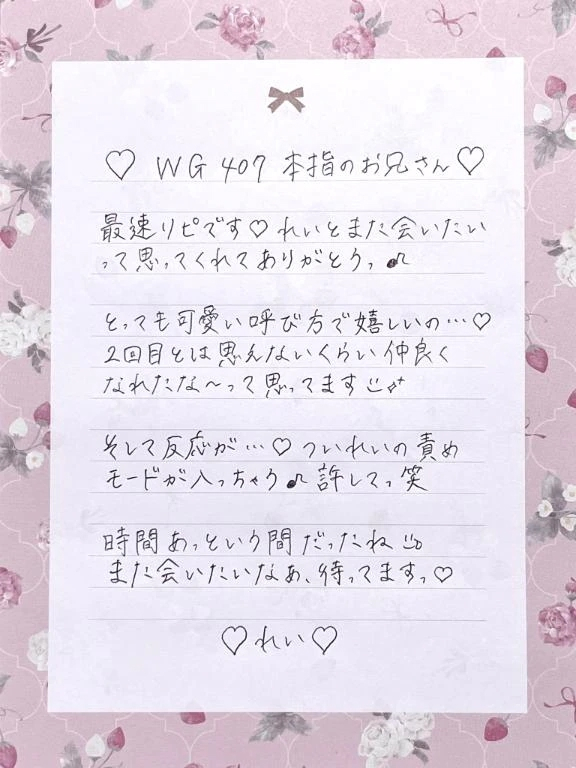 ♡ WG 407 本指のお兄さん♡
最速リピです♡れいとまた会いたい
って思ってくれてありがとうっ♪
とっても可愛い呼び方で嬉しいの…♡
2回目とは思えないくらい仲良く
なれたな〜って思ってます
そして反応が…♡ついれいの責め
モードが入っちゃう♪許してっ笑
時間あっという間だったね
また会いたいなぁ、待ってますっ♡
♡れい♡